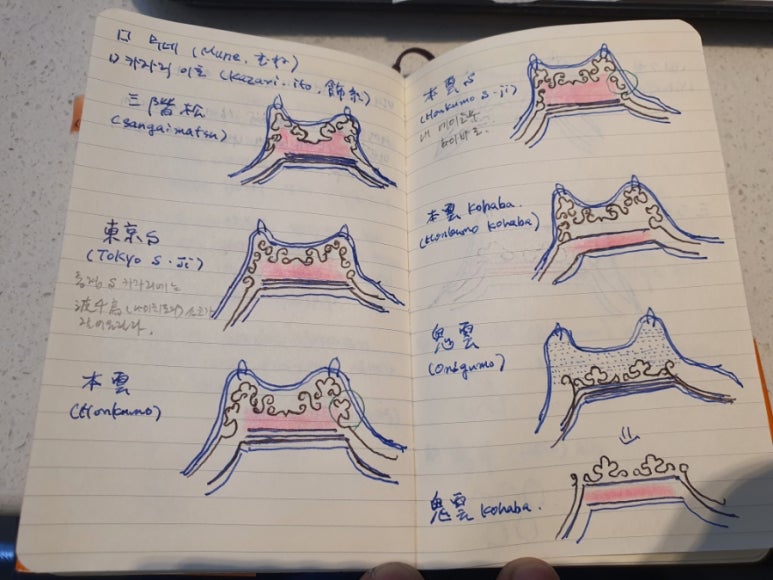 □ 무네 (Mune.
□ 카자리 이토 (Kazari.ito.飾糸)
三階松
(Sangaimatsu)
東京S
(Tokyo S.ji)
동경 S 카자리에는
波千鳥(나미치도리)
本雲
(Honkumo)
本雲S
(Honkumo S-ji)
本雲 Kohaba.
(Honkumo Kohaba)
鬼雲
(Onigumo)
鬼雲 Kohaba.